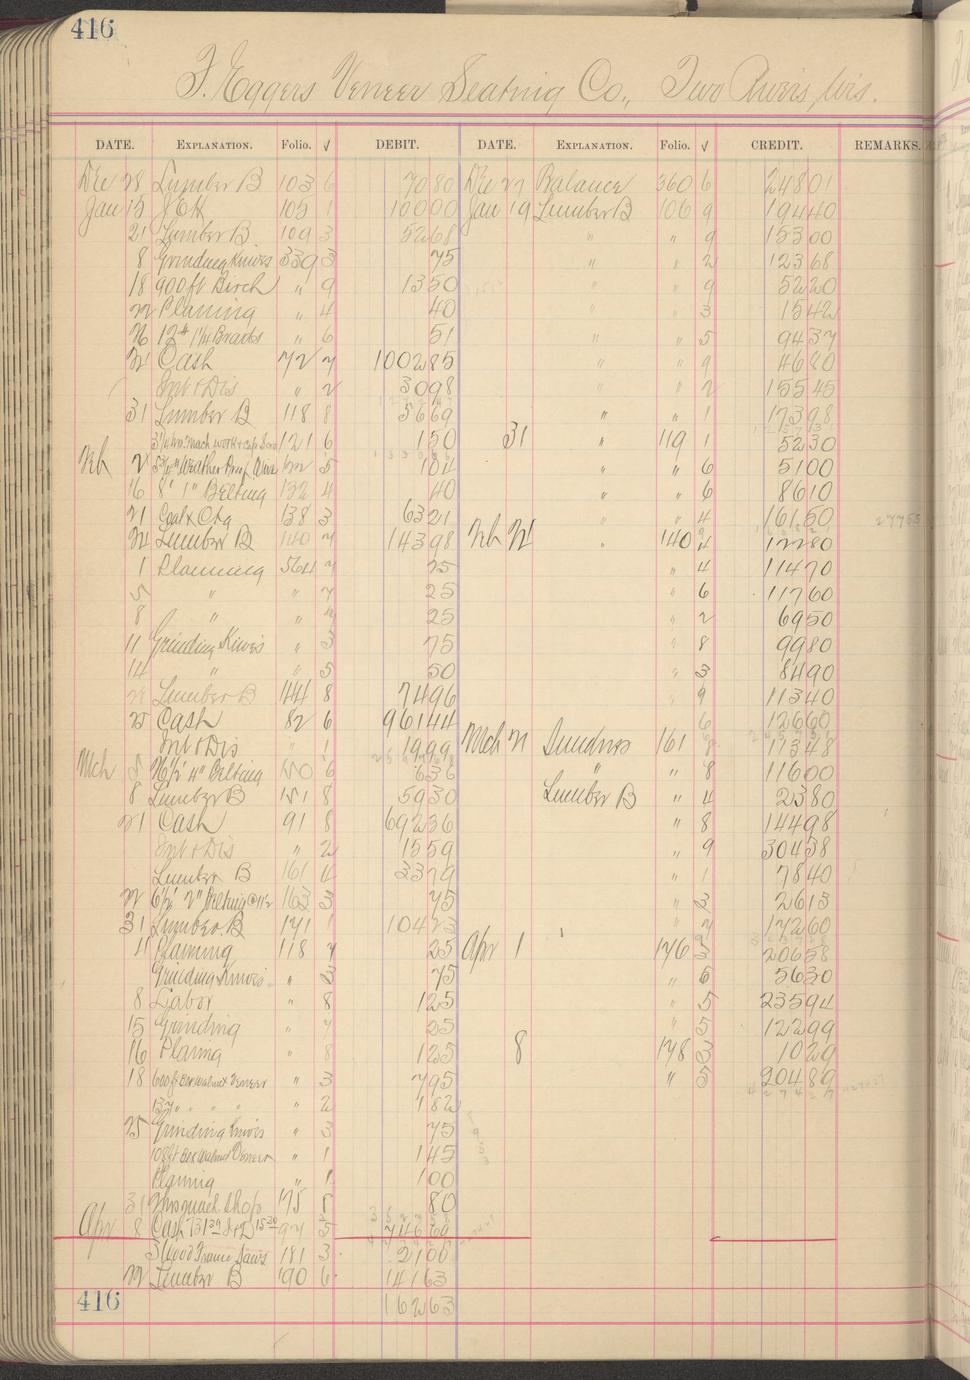 416
F. Eggers Veneer Seating Co., Two Rivers, Wis.
DATE. EXPLANATION. Folio. √ DEBIT. DATE. EXPLANATION. Folio. √ CREDIT. REMARKS.
Dec 28 Lumber B 103 6 70 80 Dec 27 Balance 360 6 248 01
Jan 15 105 1 100 00 Jan 19 Lumber B 106 9 194 40
21 Lumber B 109 3 52 68 " " 9 153 00
8 Grinding Knives 339 3 75 " " 2 123 68
18 900 ft Birch " 9 13 50 " " 9 52 20
22 Planing " 4 40 " " 3 15 42
26 12# 1¼ Brads " 6 51 " " 5 94 37
24 Cash 72 7 1002 85 " " 9 46 80
Int & Dis " 2 30 98 " " 2 155 45
31 Lumber B 118 8 56 69 " " 1 173 98
121 6 1 50 31 " 119 1 52 30
Feb 2 Weather 5 1 04 " " 6 51 00
16 8' 1" Belting 132 4 40 " " 6 86 10
21 Coal & Ctg 138 3 63 21 " " 4 161 50
24 Lumber B 140 7 143 98 Feb 24 " 140 4 122 80
1 Planing 564 7 25 " 4 114 70
5 " " 7 25 " 6 117 60
8 " " 7 25 " 2 69 50
11 Grinding Knives " 3 75 " 8 99 80
14 " " 5 50 " 3 84 90
Lumber B 144 8 74 96 " 9 113 40
25 Cash 82 6 961 44 6 126 60
Int & Dis " 1 19 99 Mch 21 Sundries 161 8 173 48
Mch 5 26½' 4" Belting 150 6 6 36 " " 8 116 00
8 Lumber B 151 8 59 30 Lumber B " 4 23 80
21 Cash 91 8 692 36 " 8 144 98
Int & Dis " 2 15 59 " 9 304 38
Lumber B 161 4 33 79 " 1 78 40
22 6½' 2" Belting 163 3 75 " 3 26 13
31 Lumber B 171 1 104 23 " 7 172 60
4 Planing 118 7 25 Apr 1 176 3 206 58
Grinding Knives " 3 75 " 6 56 30
8 Labor " 8 1 25 " 5 235 94
15 Grinding " 7 25 " 5 122 99
16 Planing " 8 1 25 8 178 3 10 29
18 600 ft Walnut Veneer " 3 7 95 " 5 204 89
137 " " " " 2 1 82
25 Grinding Knives " 3 75
108 ft Walnut Veneer " 1 1 45
Planing " 1 1 00
31 Shop 175 8 80
Apr 8 Cash 97 5 746 69
Frame Saws 181 3 21 00
22 Lumber B 190 6 141 63
416 162 63